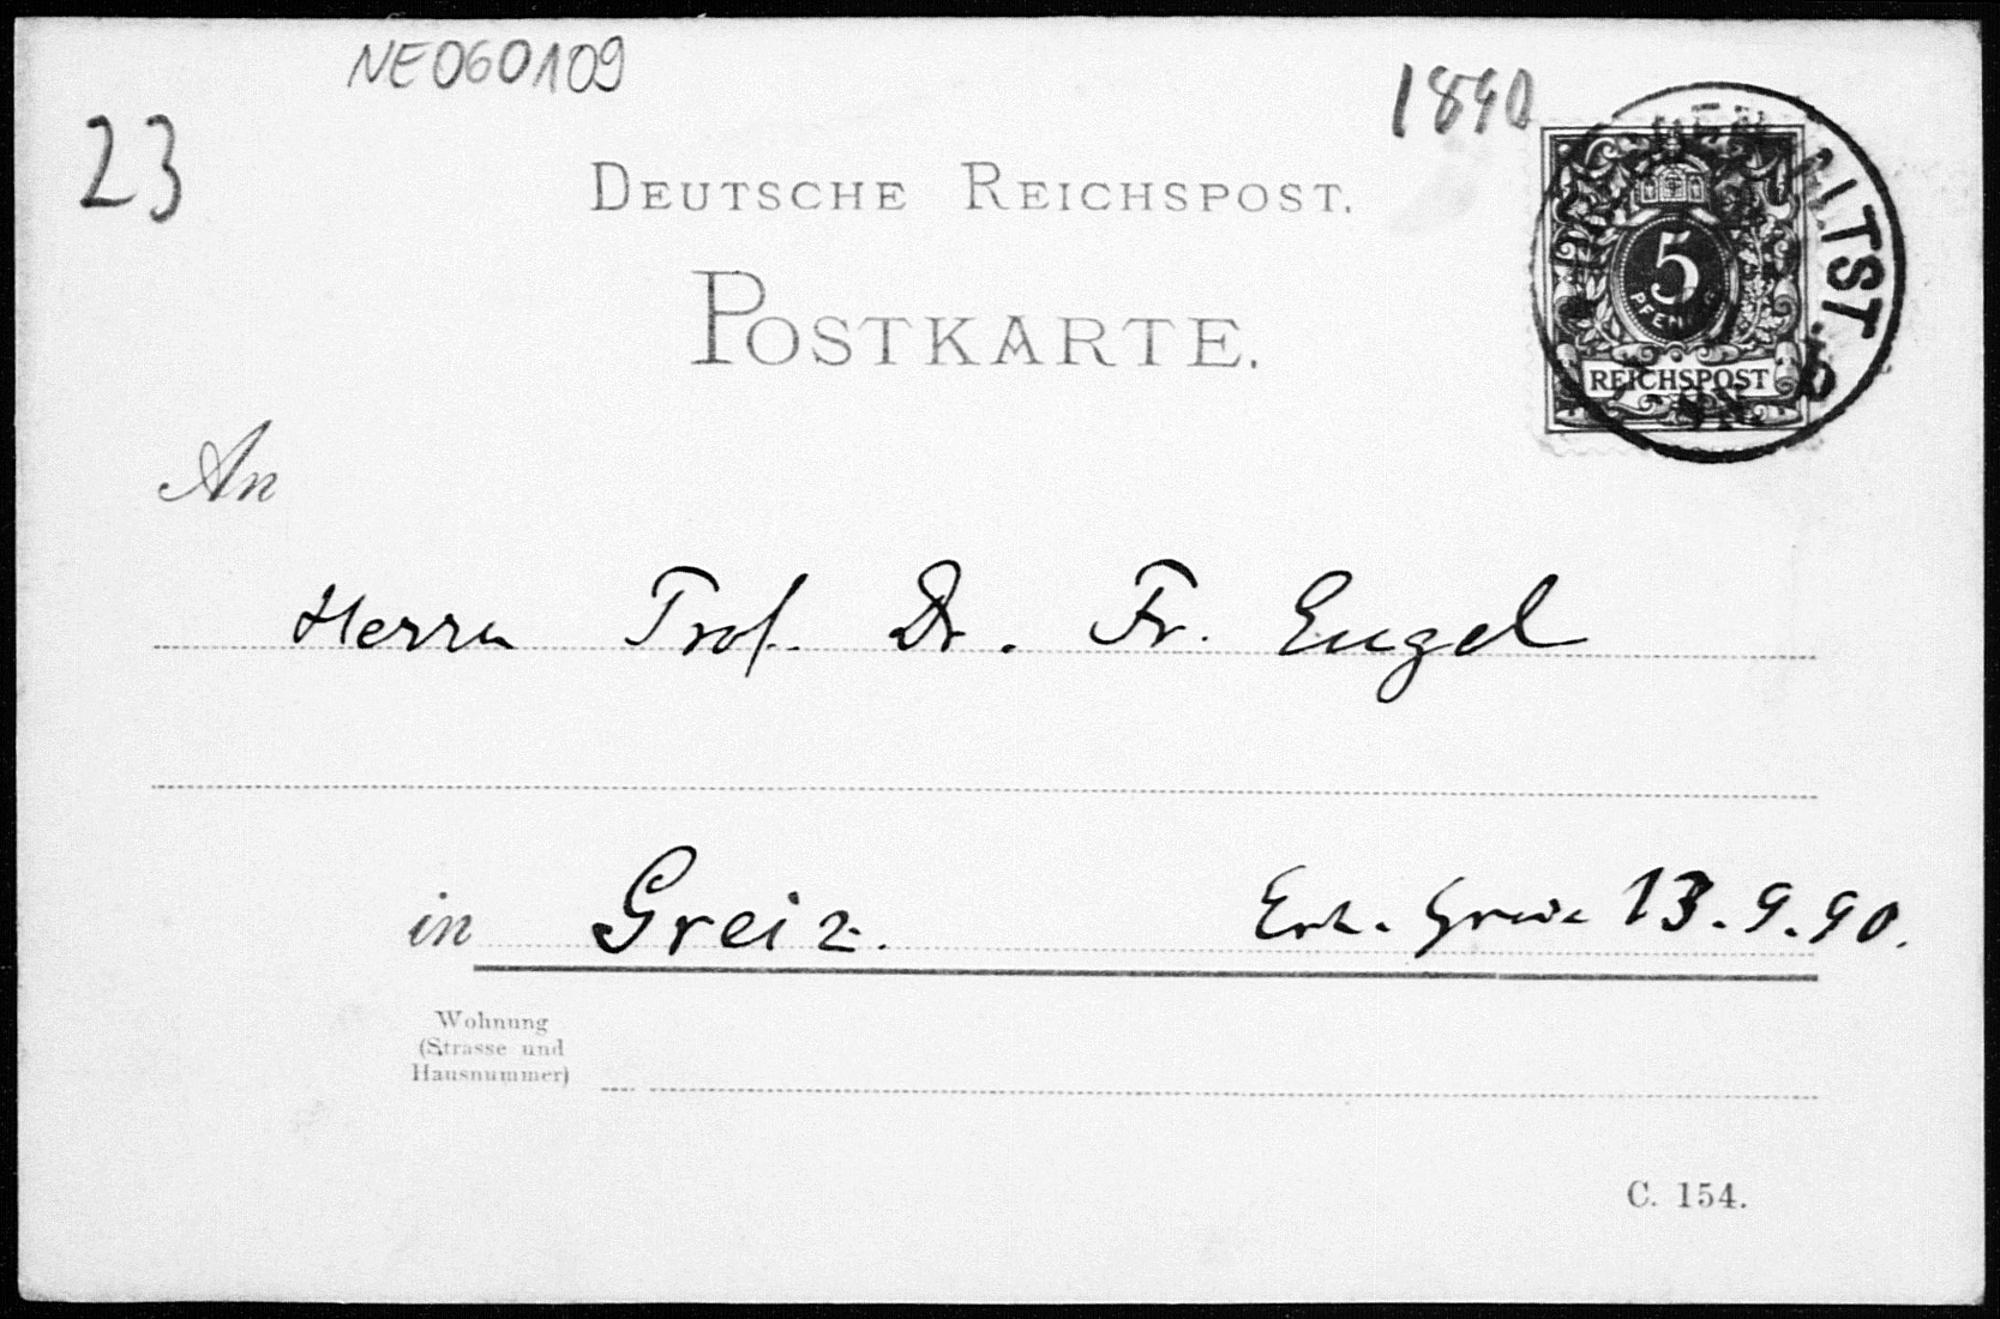 NE060109
23
1890
DEUTSCHE REICHSPOST.
POSTKARTE.
5
PFENNIG
REICHSPOST
An
Herrn Prof. Dr. Fr. Engel
in Greiz. Erh. Greiz 13.9.90.
Wohnung
(Strasse und
Hausnummer)
C. 154.